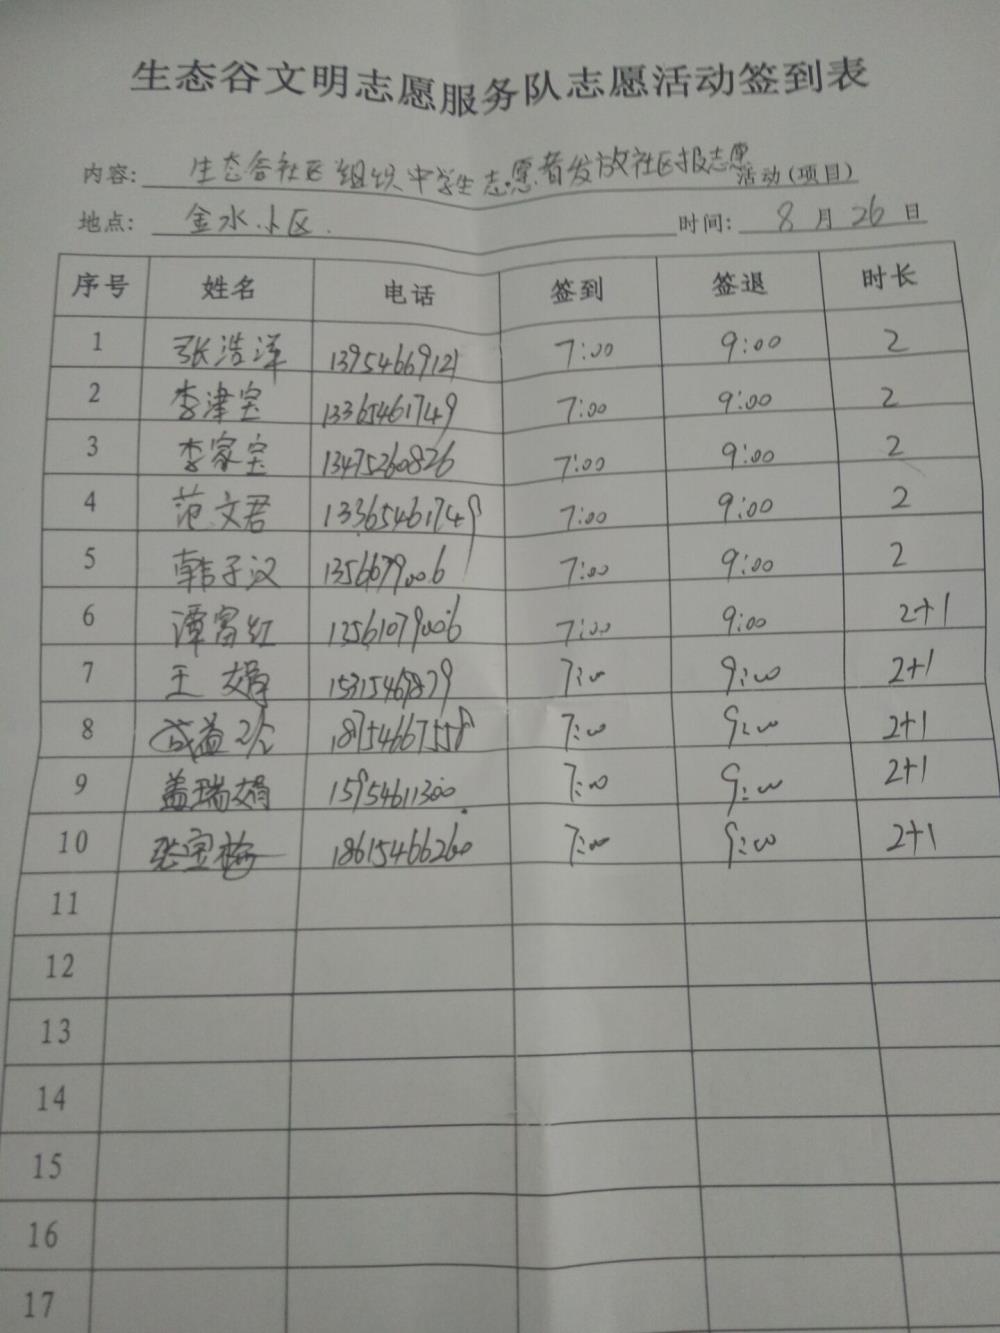 生态谷文明志愿服务队志愿活动签到表
内容: 生态谷社区组织中学生志愿者发放社区报志愿 活动(项目)
地点: 金水小区. 时间: 8 月 26 日
序号 姓名 电话 签到 签退 时长
1 张浩洋 13954669121 7:00 9:00 2
2 李津宝 13365461749 7:00 9:00 2
3 李家宝 13475260826 7:00 9:00 2
4 范文君 13365461749 7:00 9:00 2
5 韩子汉 7:00 9:00 2
6 谭富红 13561079006 7:00 9:00 2+1
7 王娟 15315469879 7:00 9:00 2+1
8 18754667558 7:00 9:00 2+1
9 盖瑞娟 15954611300 7:00 9:00 2+1
10 张宝梅 18615466260 7:00 9:00 2+1
11
12
13
14
15
16
17